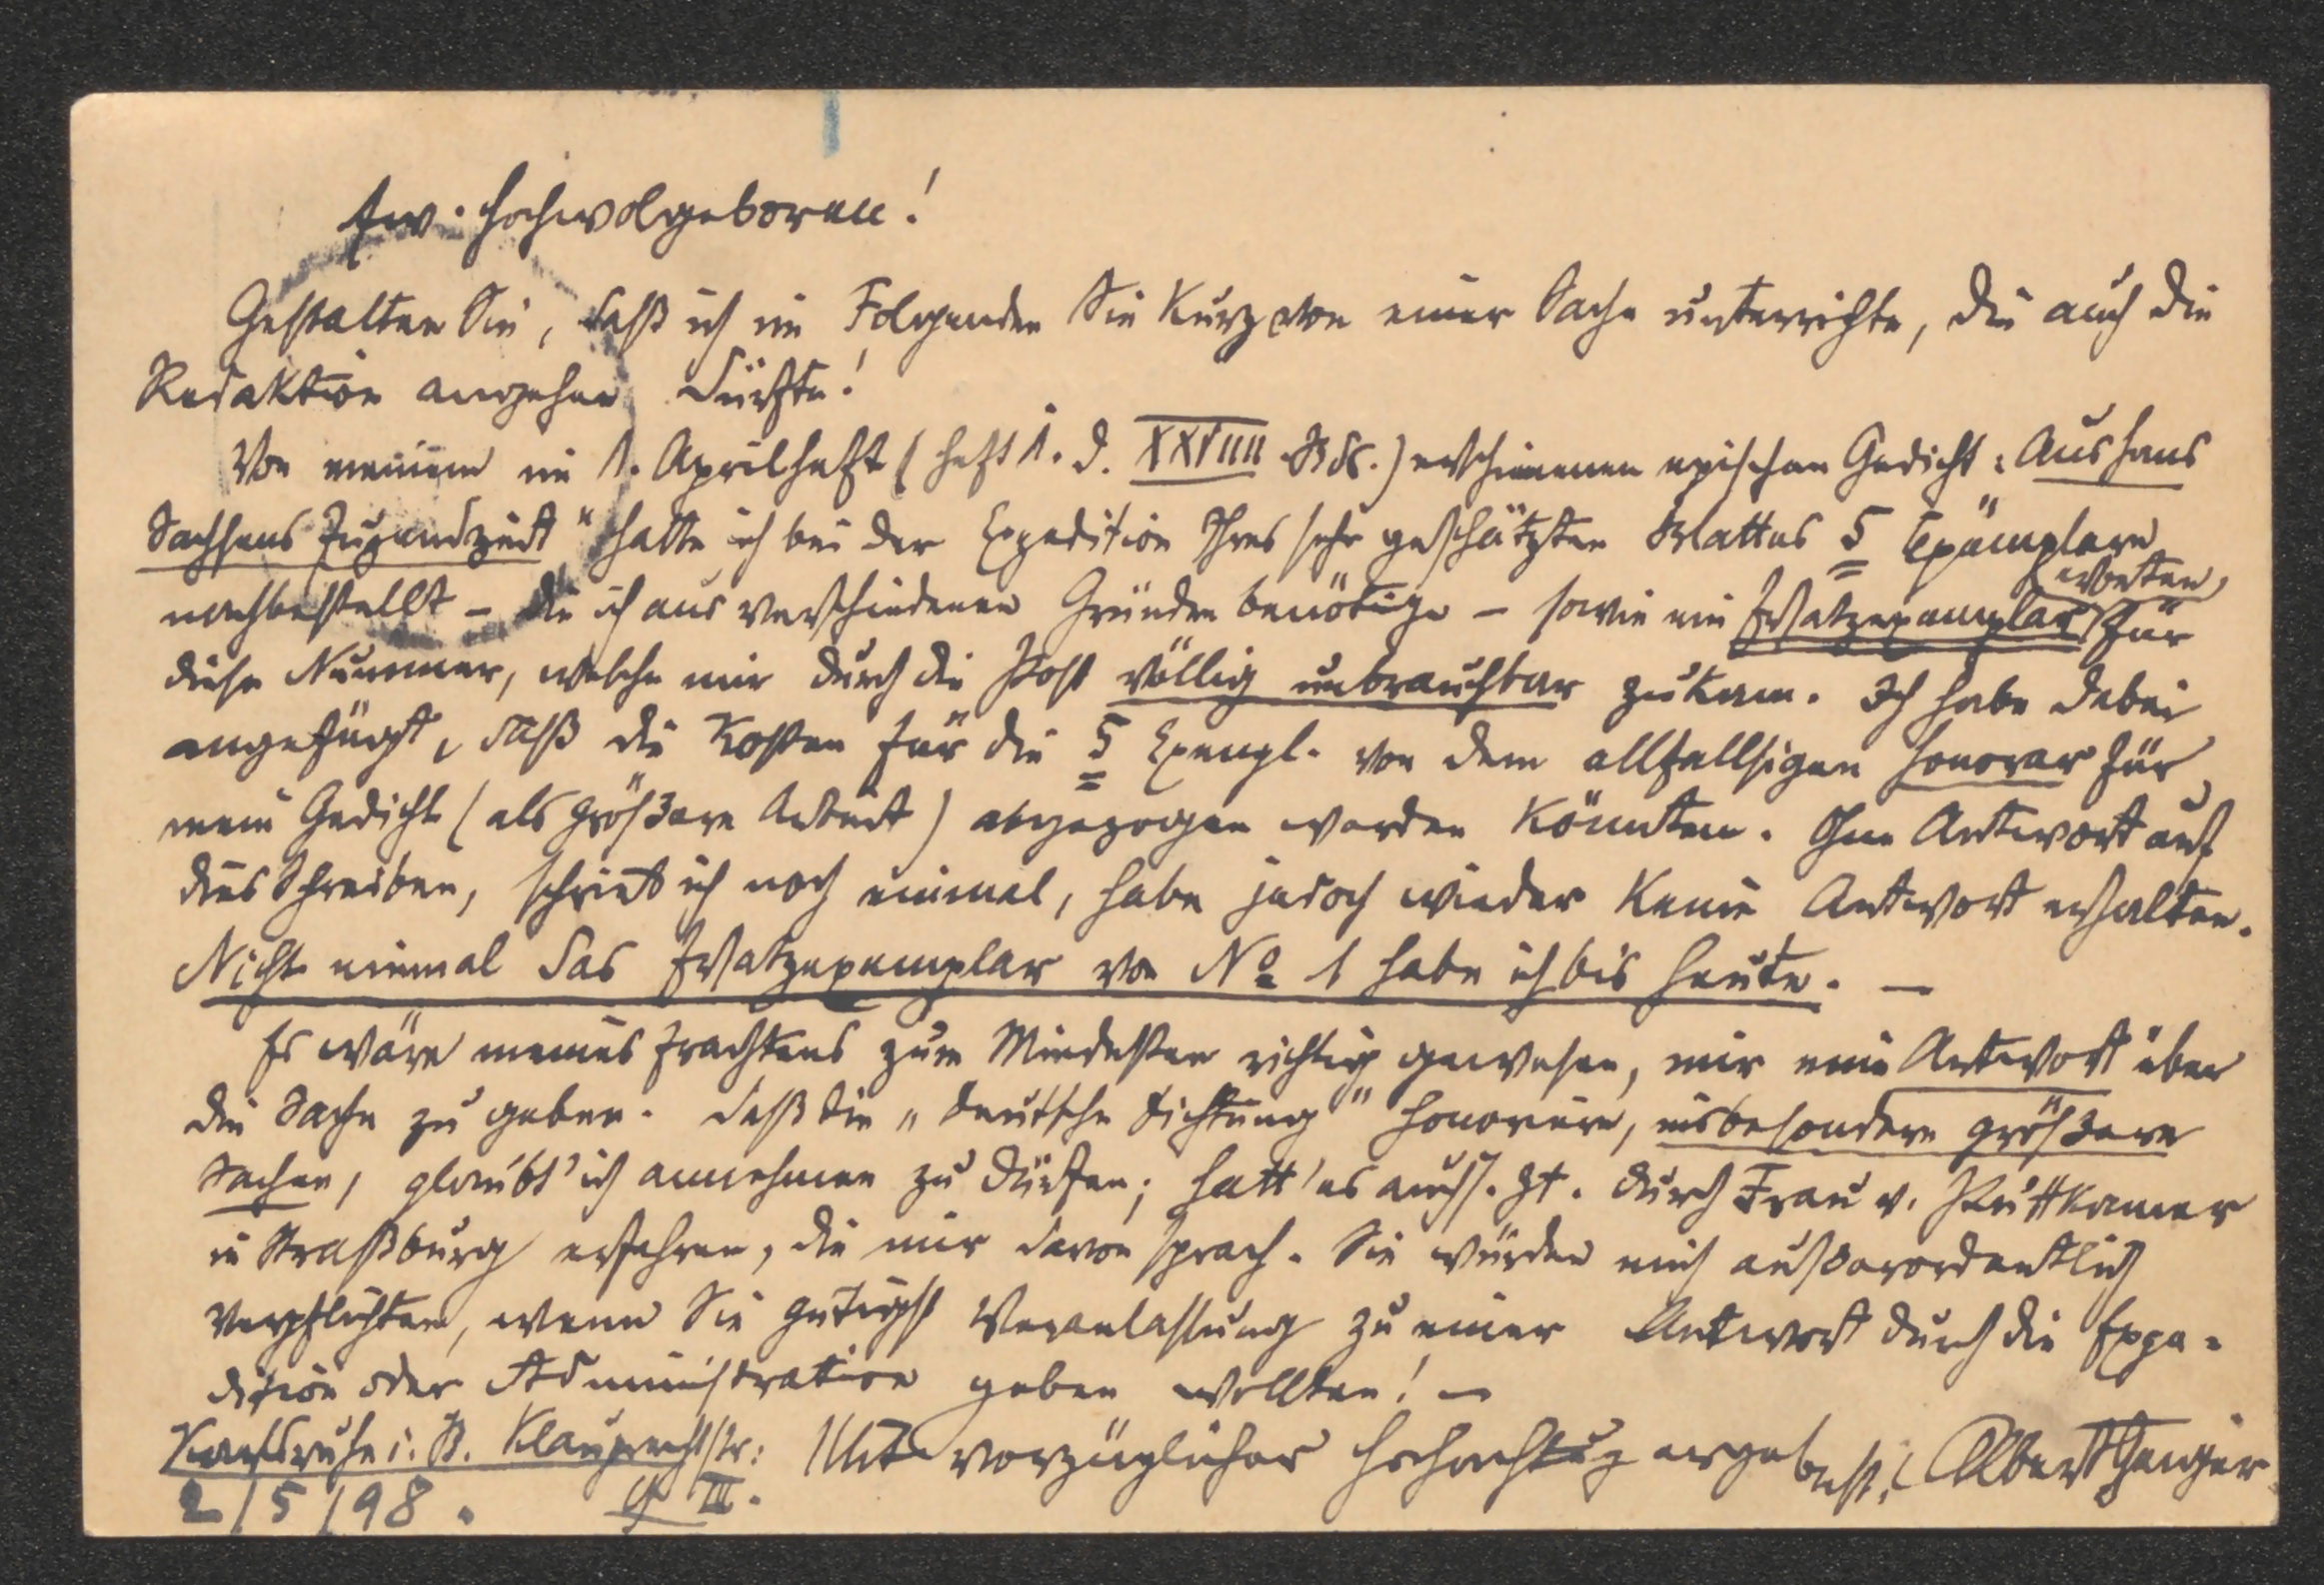 Ew. Hochwolgeboren!
Gestatten Sie, daß ich im Folgenden Sie kurz von einer Sache unterrichte, die auch die
Redaktion angehen dürfte!
Von meinem im 1. Aprilheft (Heft 1. d. XXIIII Bds.) erschienenen epischen Gedicht: Aus Hans
Sachsens Jugendzeit" hatte ich bei der Expedition Ihres sehr geschätzten Blattes 5 Exemplare
nachbestellt – die ich aus verschiedenen Gründen benötige – sowie ein Ersatzexemplar erbeten, für
diese Nummer, welche mir durch die Post völlig unbrauchbar zukam. Ich habe dabei
angefügt, daß die Kosten für die 5 Exempl. von dem allfallsigen Honorar für
mein Gedicht (als größere Arbeit) abgezogen werden könnten. Ohne Antwort auf
dies Schreiben, schrieb ich noch einmal, habe jedoch wieder keine Antwort erhalten.
Nicht einmal das Ersatzexemplar von No 1 habe ich bis heute. —
Es wäre meines Erachtens zum Mindesten richtig gewesen, mir eine Antwort über
die Sache zu geben. Daß die „Deutsche Dichtung" honoriere, insbesondere größere
Sachen, glaubt' ich annehmen zu dürfen; hatt' es auch s. Zt. durch Frau v. Puttkamer
in Straßburg erfahren, die mir davon sprach. Sie würden mich außerordentlich
verpflichten, wenn Sie gütigst Veranlassung zu einer Antwort durch die Expe-
dition oder Administration geben wollten! —
Karlsruhe i. B. Klauprechtstr: Mit vorzüglicher Hochachtung ergebenst, Albert Geiger
2/5/98. III.